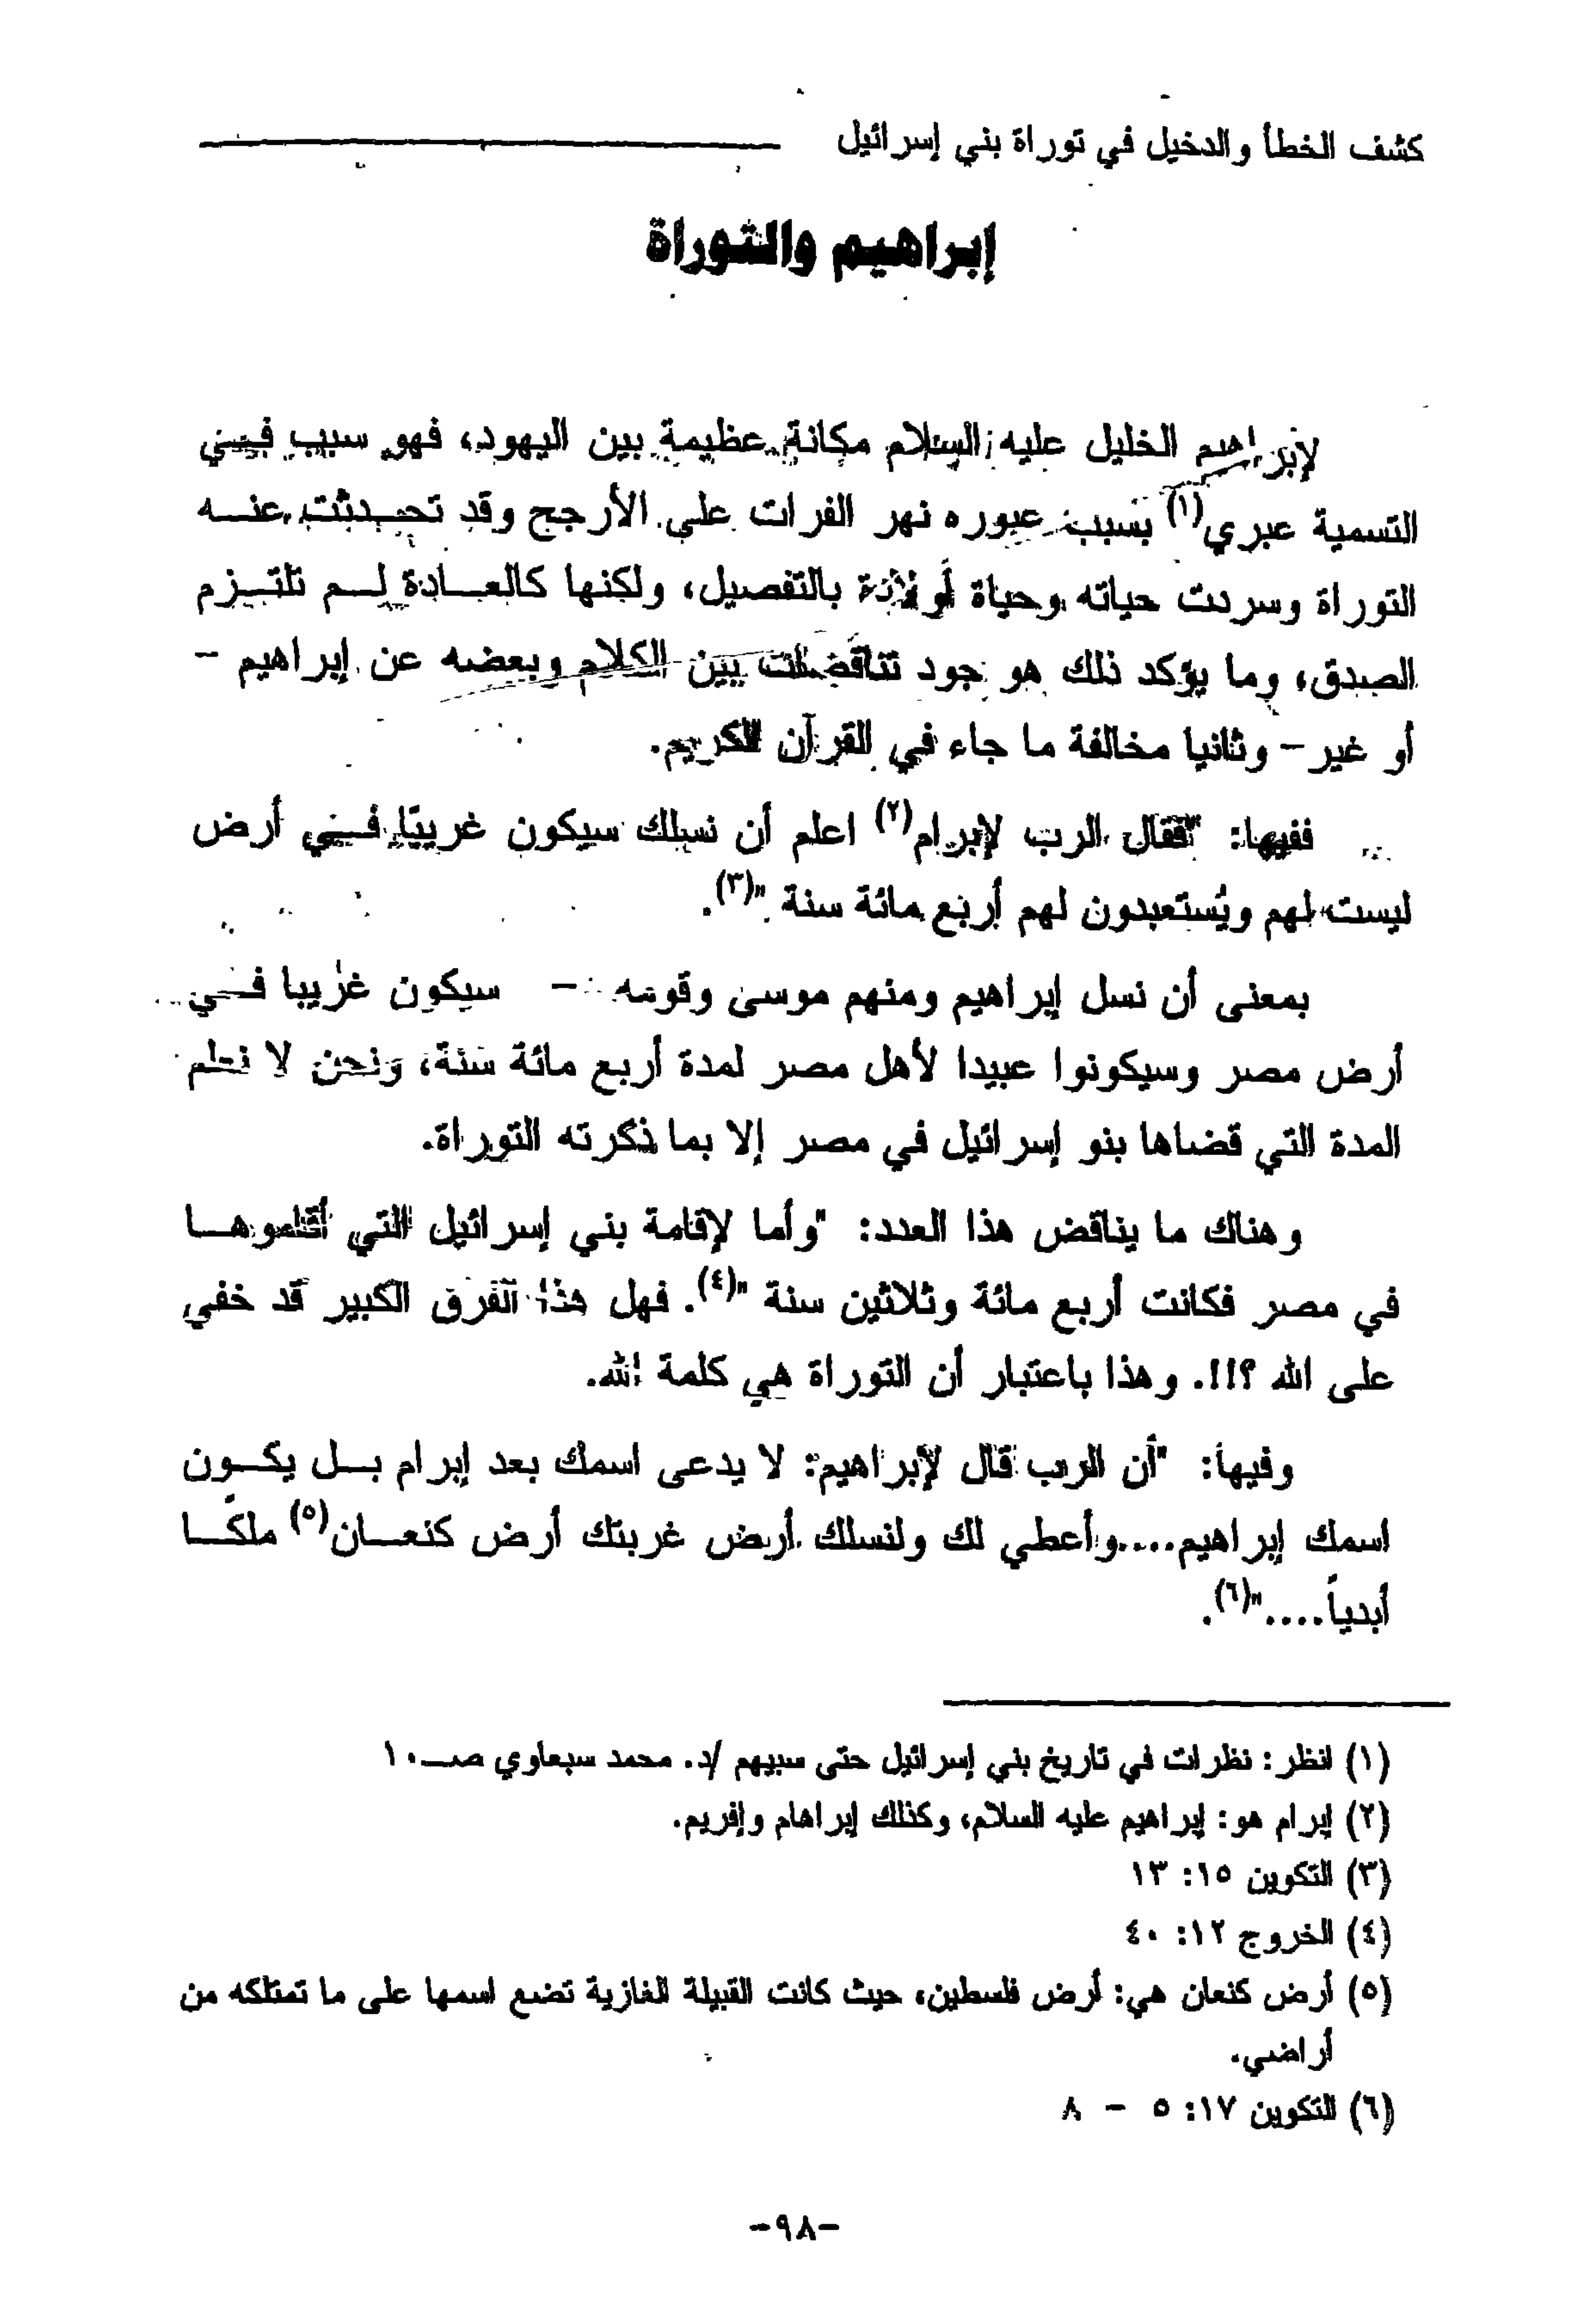 كشف الخطأ والدخيل في توراة بني إسرائيل
إبراهيم والتوراة
لإبراهيم الخليل عليه السلام مكانة عظيمة بين اليهود، فهو سبب في
التسمية عبري(١) بسبب عبوره نهر الفرات على الأرجح وقد تحدثت عنه
التوراة وسردت حياته وحياة أولاده بالتفصيل، ولكنها كالعادة لم تلتزم
الصدق، وما يؤكد ذلك هو وجود تناقضات بين الكلام وبعضه عن إبراهيم –
أو غير– وثانيا مخالفة ما جاء في القرآن الكريم.
ففيها: "فقال الرب لإبرام(٢) اعلم أن نسلك سيكون غريبًا في أرض
ليست لهم ويُستعبدون لهم أربع مائة سنة "(٣).
بمعنى أن نسل إبراهيم ومنهم موسى وقومه – سيكون غريبا في
أرض مصر وسيكونوا عبيدا لأهل مصر لمدة أربع مائة سنة، ونحن لا نعلم
المدة التي قضاها بنو إسرائيل في مصر إلا بما ذكرته التوراة.
وهناك ما يناقض هذا العدد: "وأما لإقامة بني إسرائيل التي أقاموها
في مصر فكانت أربع مائة وثلاثين سنة "(٤). فهل هذا الفرق الكبير قد خفي
على الله ؟!!. وهذا باعتبار أن التوراة هي كلمة الله.
وفيها: "أن الرب قال لإبراهيم: لا يدعى اسمك بعد إبرام بل يكون
اسمك إبراهيم....وأعطي لك ولنسلك أرض غربتك أرض كنعان(٥) ملكًا
أبدياً...."(٦).
(١) انظر: نظرات في تاريخ بني إسرائيل حتى سبيهم /د. محمد سبعاوي صـ١٠
(٢) إبرام هو: إبراهيم عليه السلام، وكذلك إبراهام وإفريم.
(٣) التكوين ١٥: ١٣
(٤) الخروج ١٢: ٤٠
(٥) أرض كنعان هي: أرض فلسطين، حيث كانت القبيلة الغازية تضع اسمها على ما تمتلكه من
أراضي.
(٦) التكوين ١٧: ٥ – ٨
-٩٨-